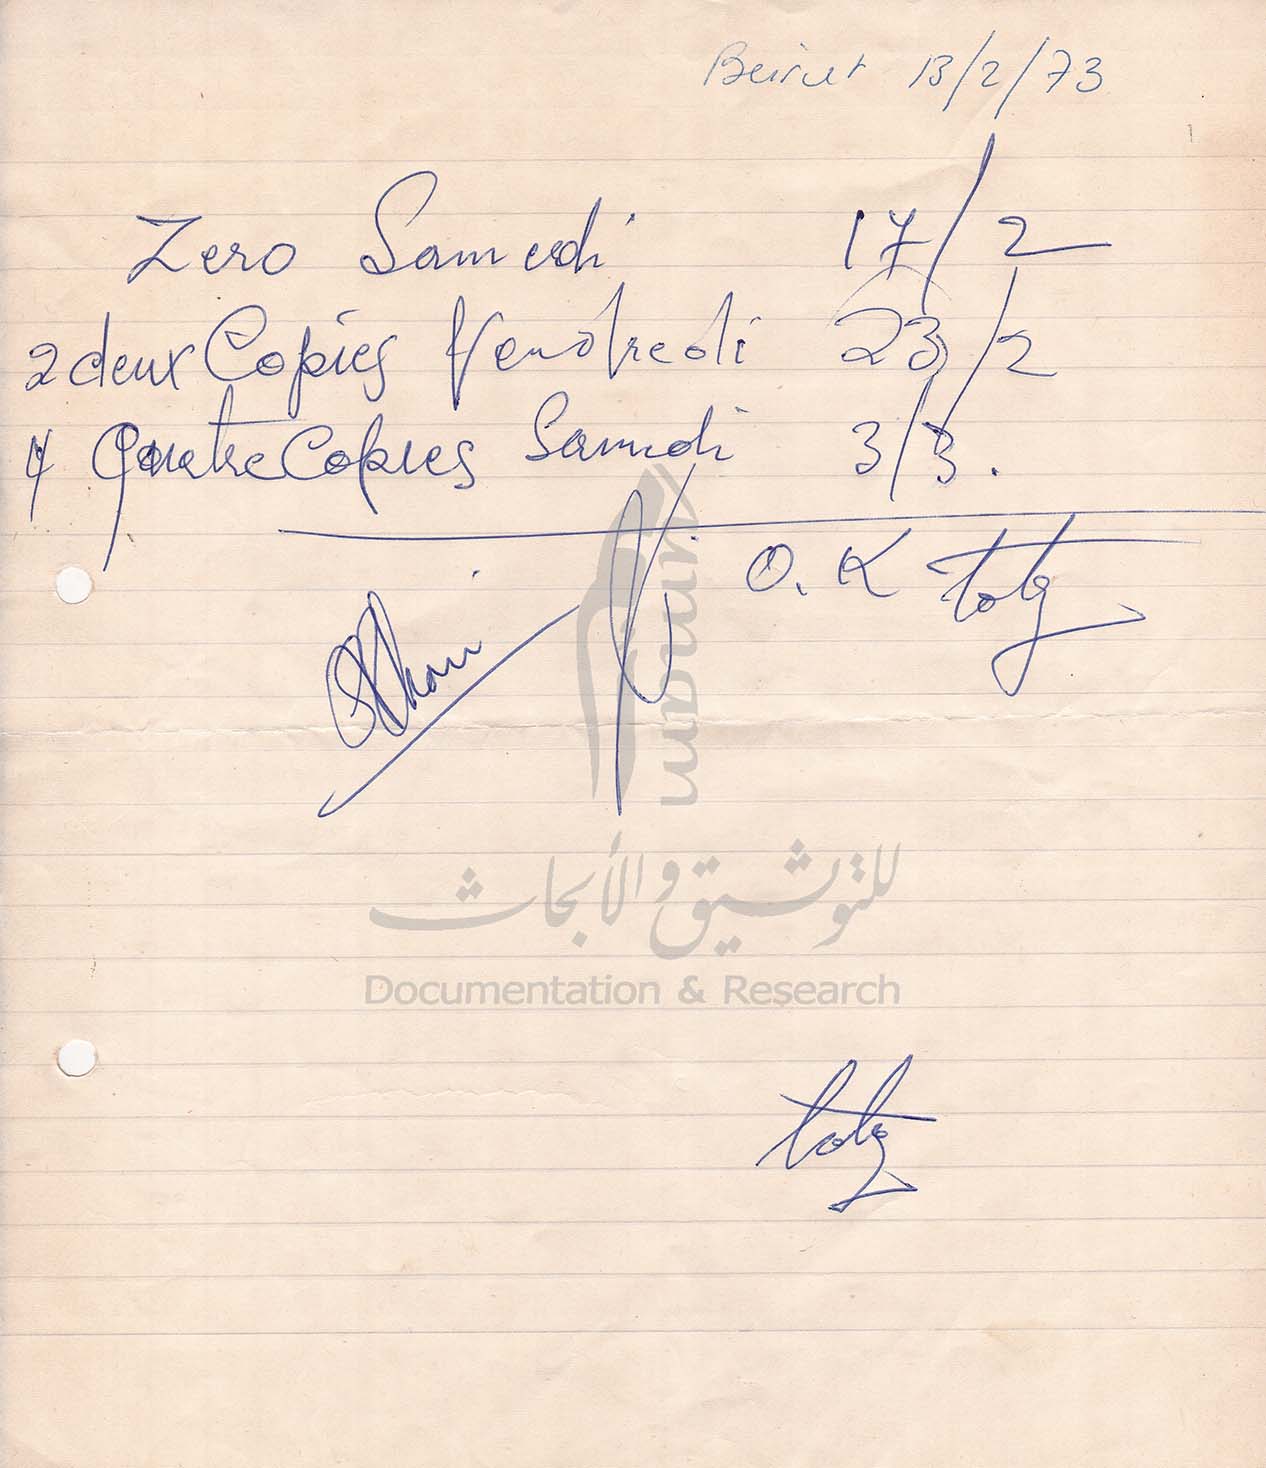 Beirut 13/2/73
Zero Samedi 17/2
2 deux Copies Vendredi 23/2
4 Quatre Copies Samedi 3/3.
O.K
umam
للتوثيق والأبحاث
Documentation & Research